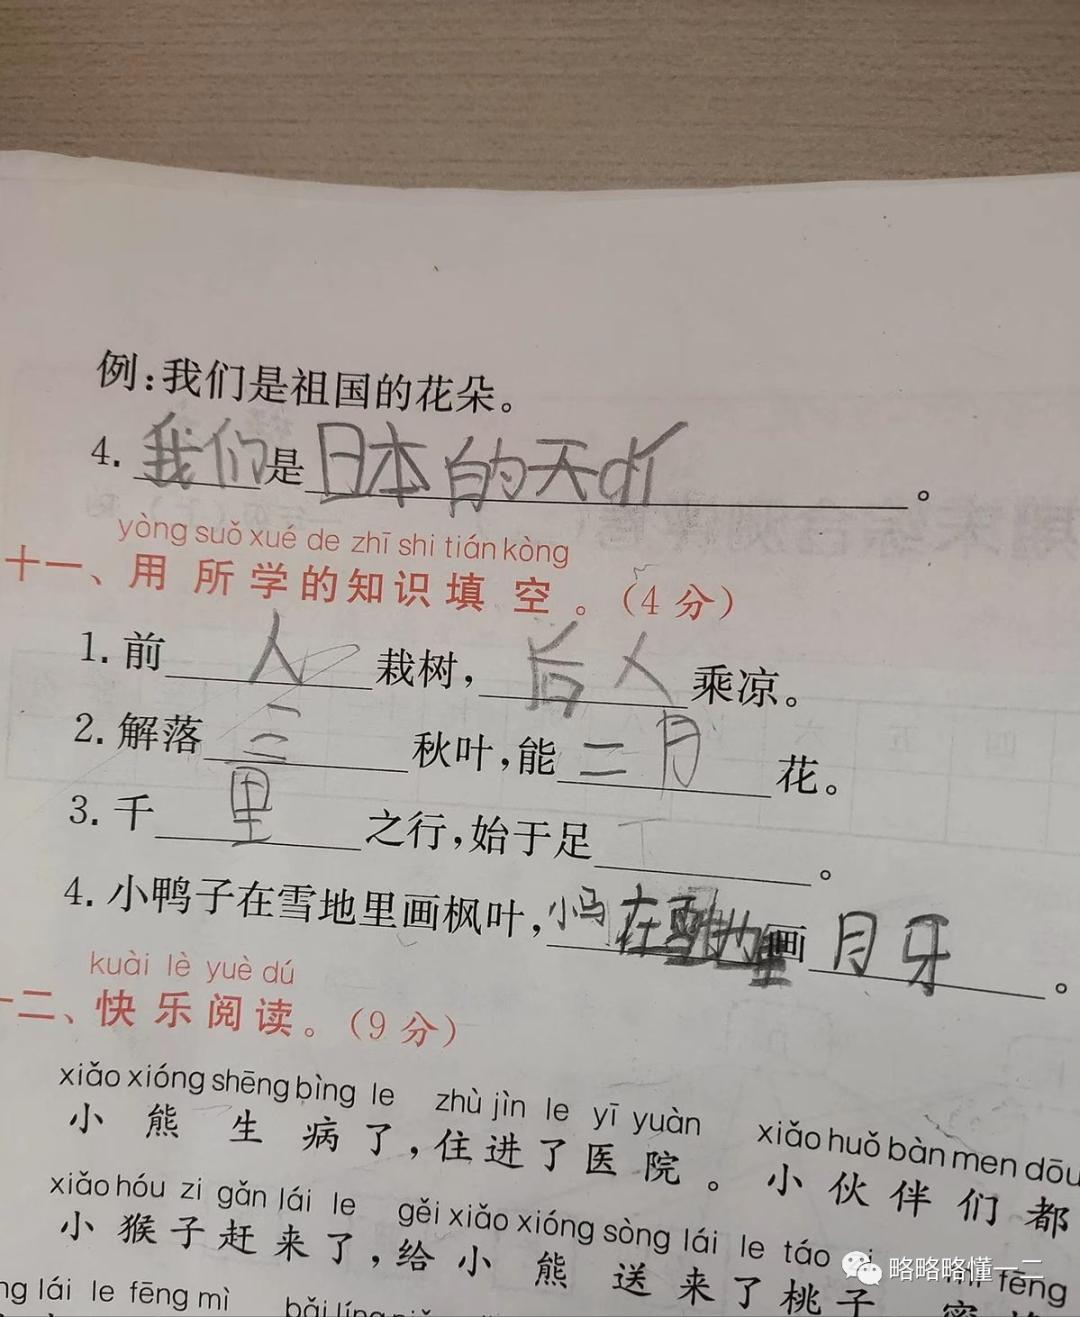 例:我们是祖国的花朵。
4.我们是日本的天dí。
yòng suǒ xué de zhī shi tián kòng
十一、用所学的知识填空。(4分)
1.前人栽树,后人乘凉。
2.解落三秋叶,能二月花。
3.千里之行,始于足。
4.小鸭子在雪地里画枫叶,小马在雪地里画月牙。
kuài lè yuè dú
二、快乐阅读。(9分)
xiǎo xióng shēng bìng le zhù jìn le yī yuàn xiǎo huǒ bàn men dōu
小熊生病了,住进了医院。小伙伴们都
xiǎo hóu zi gǎn lái le gěi xiǎo xióng sòng lái le táo mì fēng
小猴子赶来了,给小熊送来了桃子
ng lái le fēng mì
略略略懂一二